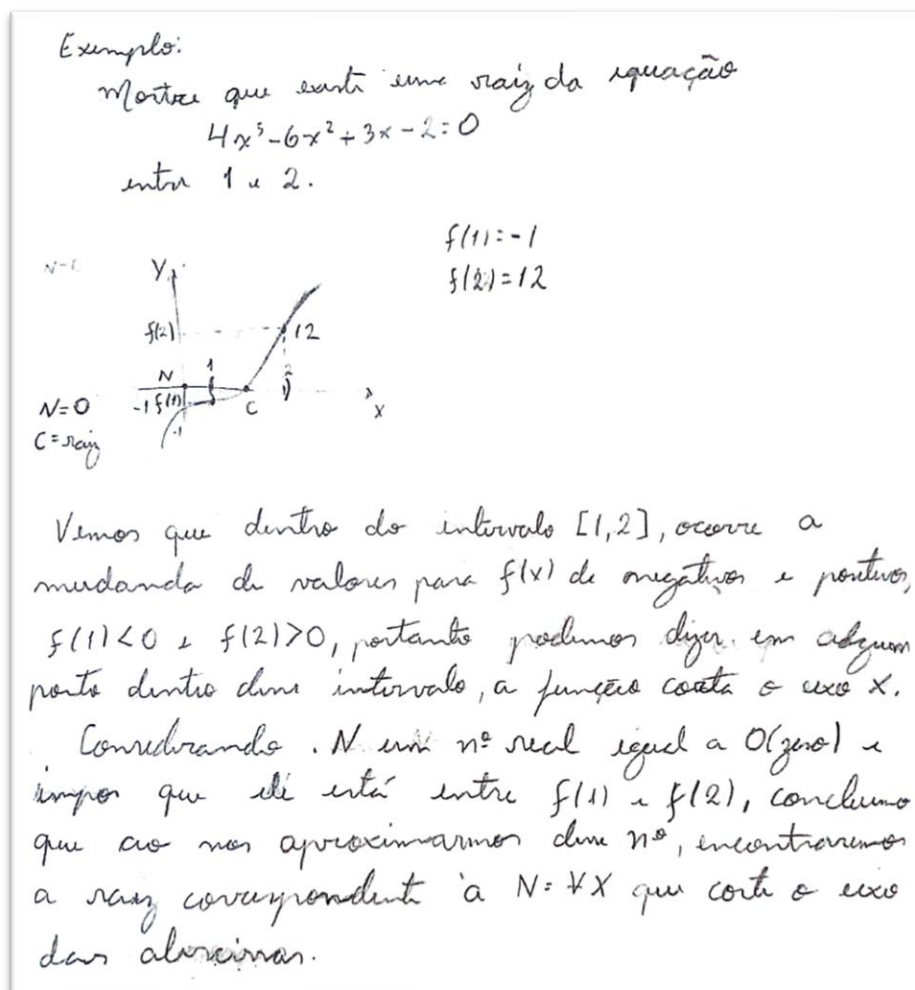 Exemplo:
Mostre que existe uma raiz da equação
4x³-6x²+3x-2=0
entre 1 e 2.
f(1)=-1
f(2)=12
Y
f(2)
12
N
1
2
-1 f(1)
C
X
-1
N=0
C=raiz
Vemos que dentro do intervalo [1,2], ocorre a
mudanda de valores para f(x) de negativos e positivos,
f(1)<0 e f(2)>0, portanto podemos dizer em algum
ponto dentro desse intervalo, a função corta o eixo X.
Considerando N um nº real igual a 0(zero) e
impor que ele está entre f(1) e f(2), concluimo
que ao nos aproximarmos desse nº, encontraremos
a raiz correspondente à N=∀X que corte o eixo
das abscissas.